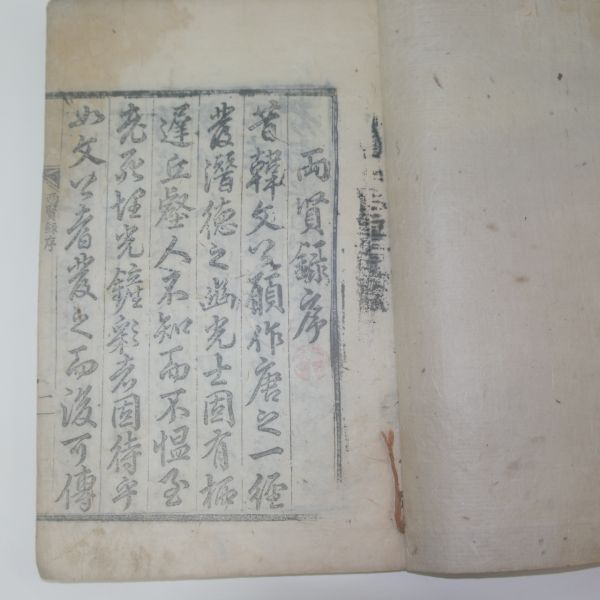 兩賢錄序
昔韓文公願作唐之一經
發潛德之幽光士固有栖
遲丘壑人不知而不慍至
老死埋光鏟彩者固待乎
如文公者發之而後可傳
兩賢錄序
一